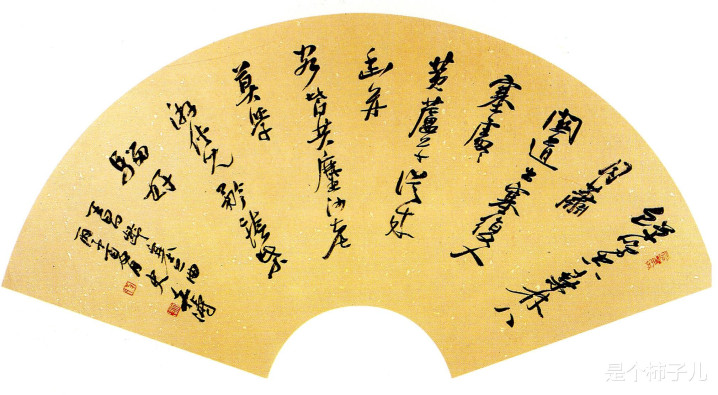 蟬鳴空桑林八
月蕭
關道出塞復入
塞處處
黄蘆草從來
幽并
客皆共塵沙老
莫學
游俠兒矜誇紫
騮好
王昌齡塞上曲
是个柿子儿